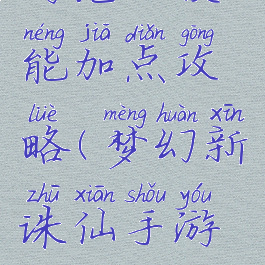 néng jiā diǎn gōng
能加点攻
lüè mèng huàn xīn
略(梦幻新
zhū xiān shǒu yóu
诛仙手游